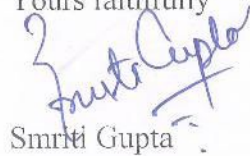 Yours faithfully
Smriti Gupta
Smriti Gupta